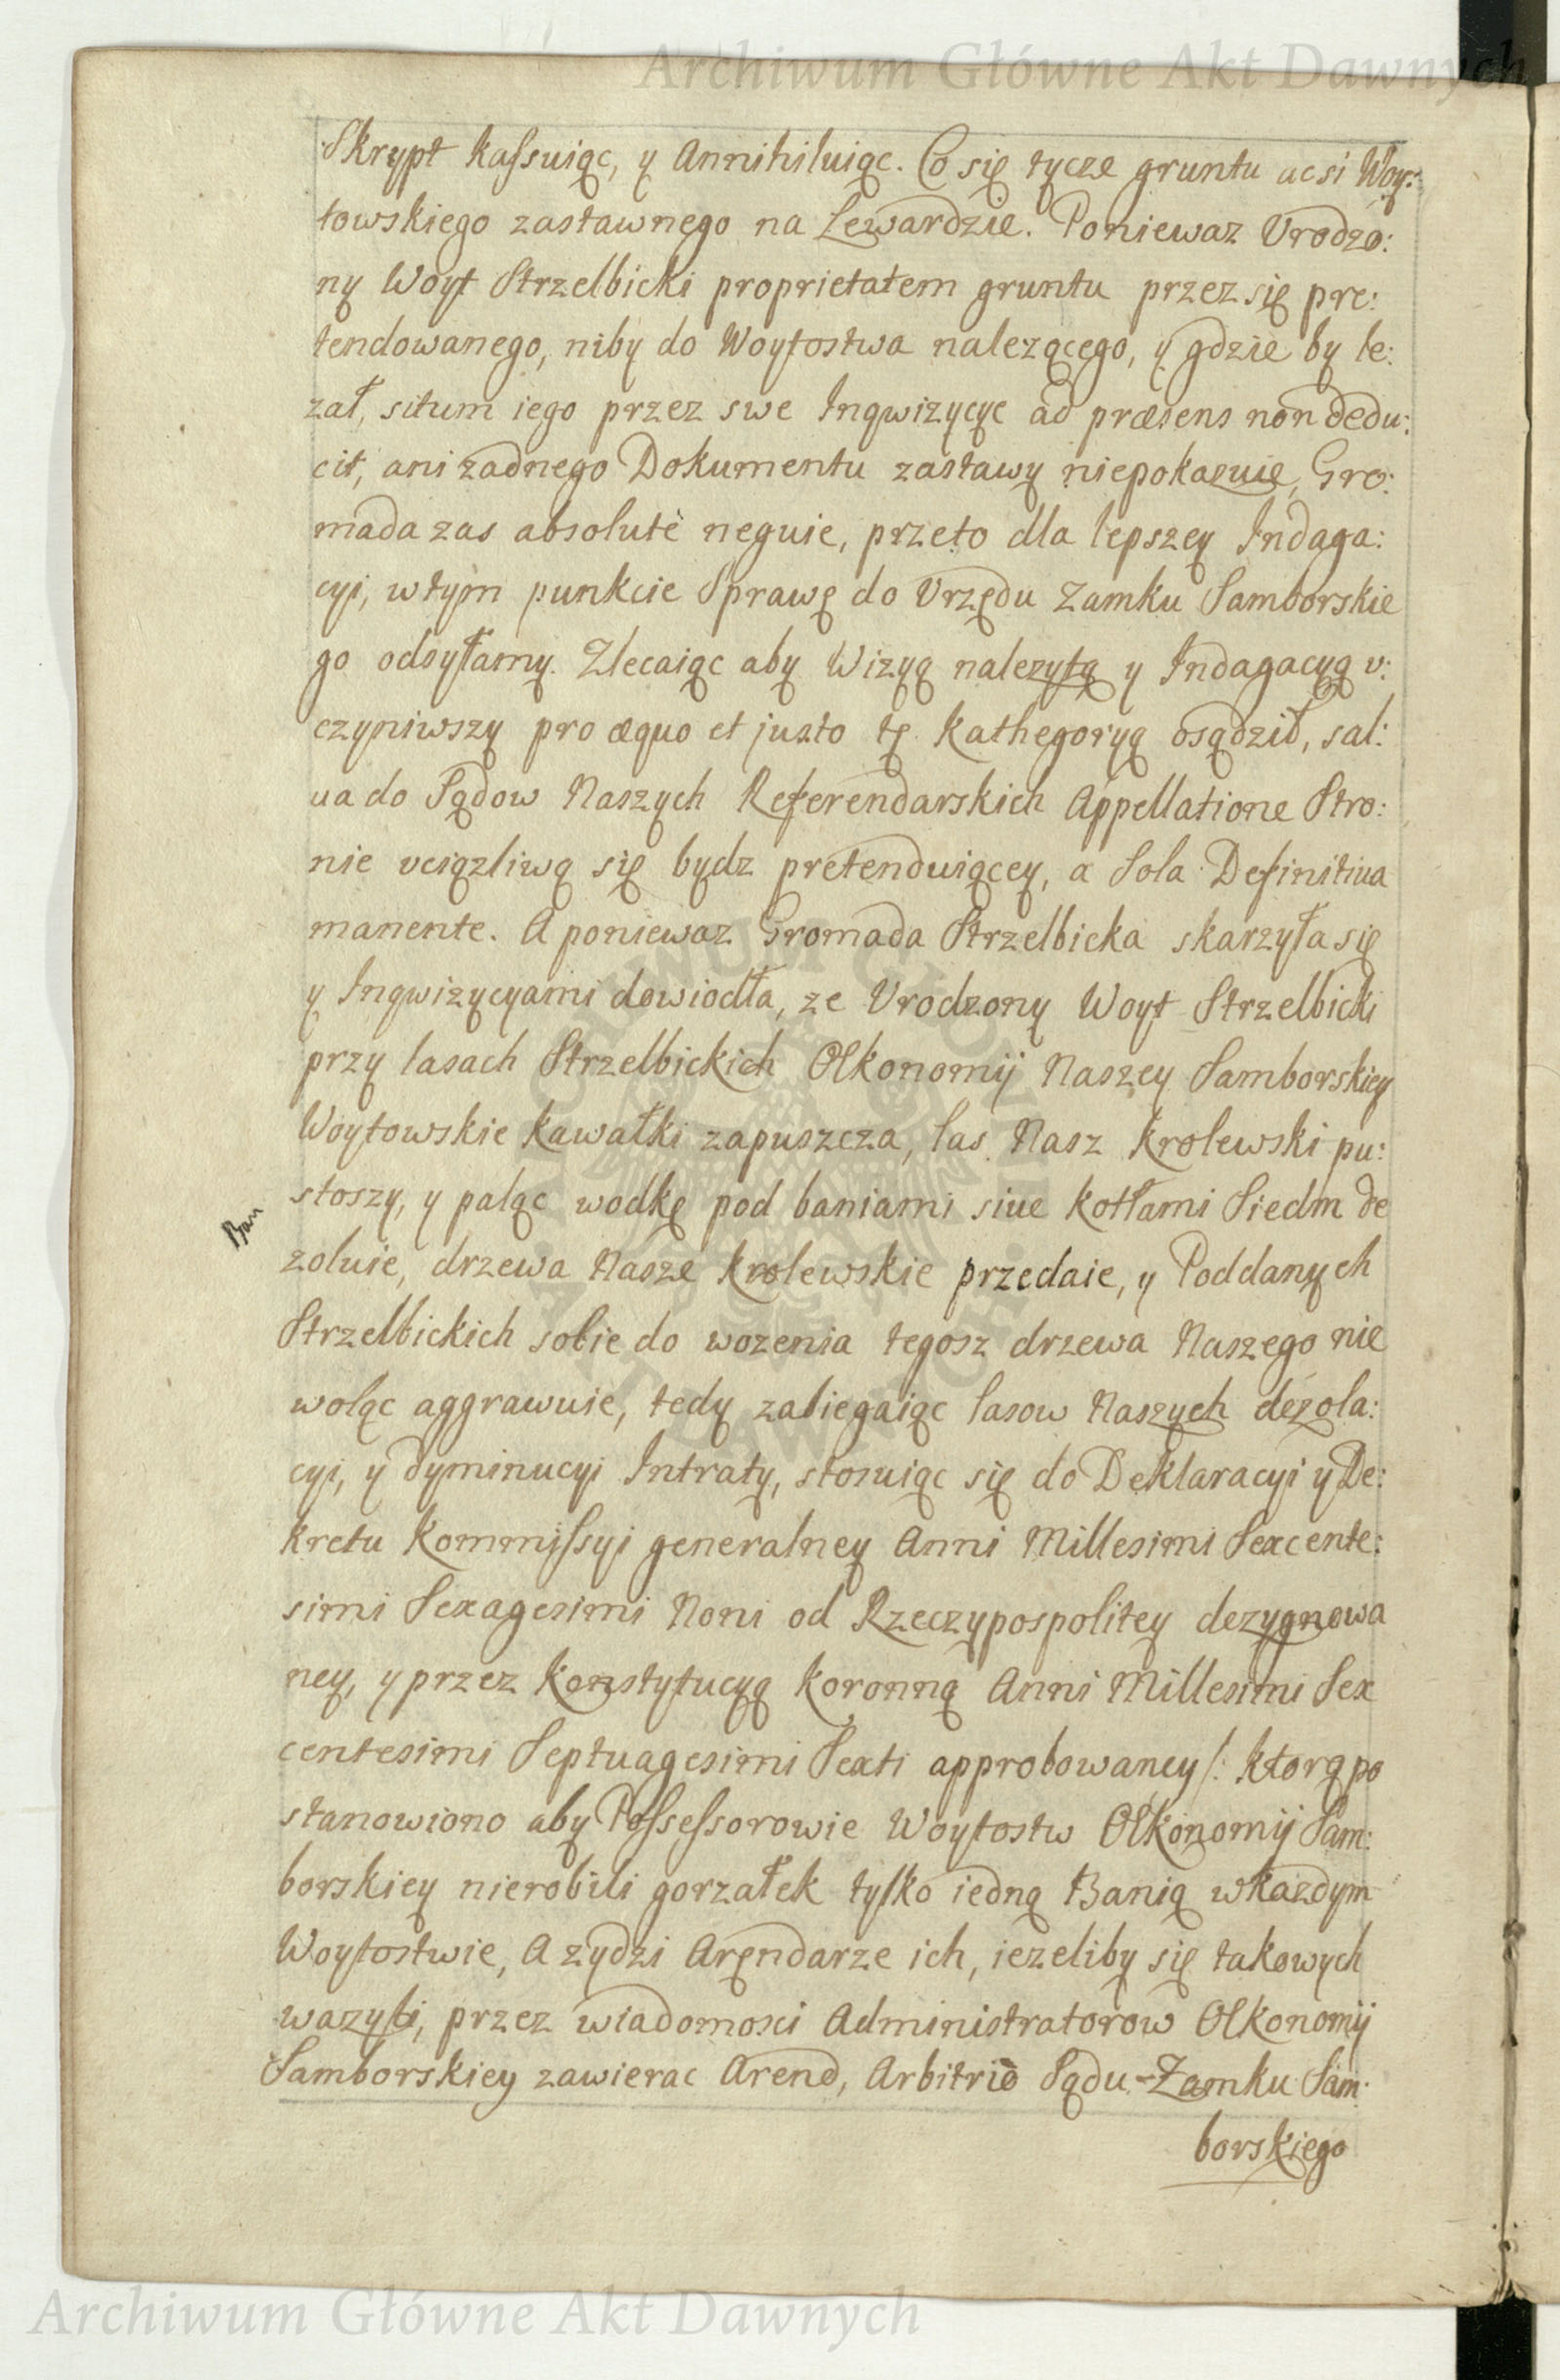 Archiwum Główne Akt Dawnych
Skrypt kassuiąc, y Annihiluiąc. Co się tycze gruntu acsi Woy:
towskiego zastawnego na Lewardzie. Poniewaz Vrodzo:
ny Woyt Strzelbicki proprietatem gruntu przez się pre:
tendowanego, niby do Woytostwa nalezącego, y gdzie by le:
zał, situm iego przez swe Inqwizycye ad præsens non dedu:
cit, ani zadnego Dokumentu zastawy niepokazuie, Gro:
mada zas absolutè neguie, przeto dla lepszey Indaga:
cyi, wtym punkcie Sprawę do Vrzędu Zamku Samborskie
go odsyłamy. Zlecaiąc aby Wizyą nalezytą y Indagacyą v:
czyniwszy pro æquo et justo tę Kathegoryą osądził, sal:
ua do Sądow Naszych Referendarskich Appellatione Stro:
nie vciązliwą się bydz pretenduiącey, a Sola Definitiua
manente. A poniewaz Gromada Strzelbicka skarzyła się
y Inqwizycyami dowiodła, ze Vrodzony Woyt Strzelbicki
przy lasach Strzelbickich Œkonomij Naszey Samborskiey
Woytowskie kawałki zapuszcza, las Nasz Krolewski pu:
stoszy, y paląc wodkę pod baniami siue kotłami Siedm de
Ban
zoluie, drzewa Nasze Krolewskie przedaie, y Poddanych
Strzelbickich sobie do wozenia tegosz drzewa Naszego nie
woląc aggrawuie, tedy zabiegaiąc lasow Naszych dezola:
cyi, y dyminucyi Intraty, stosuiąc się do Deklaracyi y De:
kretu Kommissyi generalney Anni Millesimi Sexcente:
simi Sexagesimi Noni od Rzeczypospolitey dezygnowa
ney, y przez Konstytucyą Koronną Anni Millesimi Sex
centesimi Septuagesimi Sexti approbowaney /: ktorą po
stanowiono aby Possessorowie Woytostw Œkonomij Sam:
borskiey nierobili gorzałek tylko iedną Banią wkazdym
Woytostwie, A zydzi Arendarze ich, iezeliby się takowych
wazyli, przez wiadomosci Administratorow Œkonomij
Samborskiey zawierac Arend, Arbitrio Sądu Zamku Sam:
borskiego
Archiwum Główne Akt Dawnych